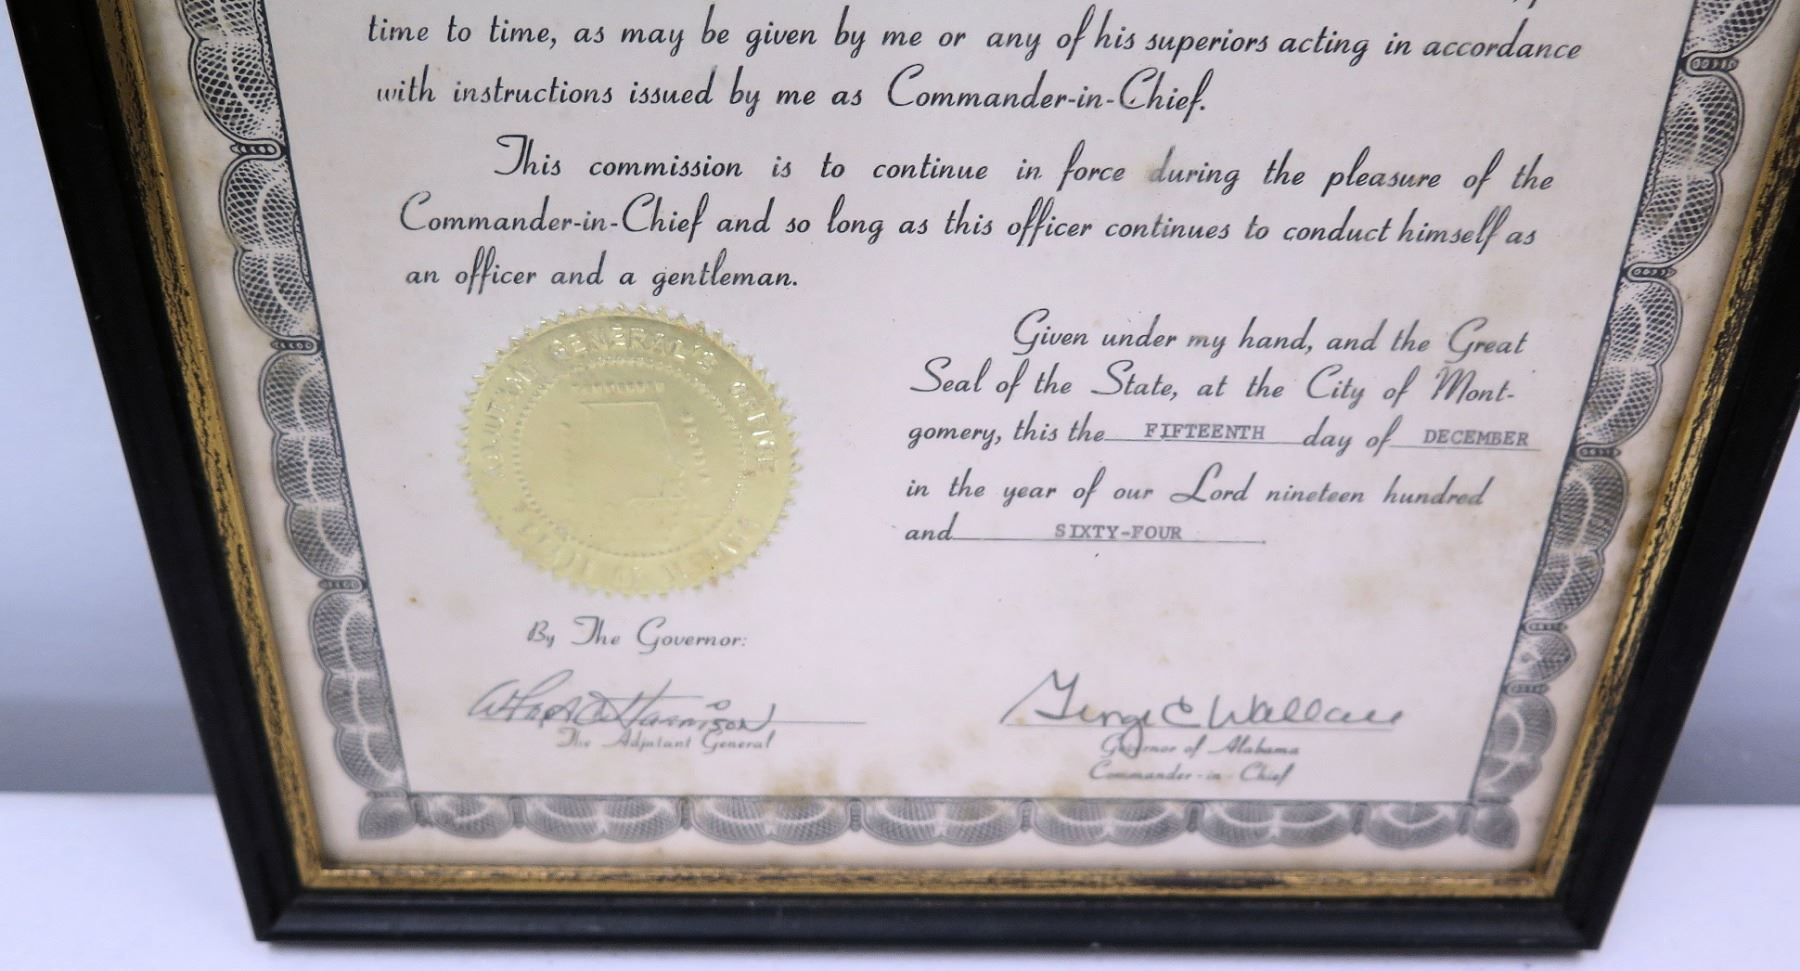 time to time, as may be given by me or any of his superiors acting in accordance
with instructions issued by me as Commander-in-Chief.
This commission is to continue in force during the pleasure of the
Commander-in-Chief and so long as this officer continues to conduct himself as
an officer and a gentleman.
Given under my hand, and the Great
Seal of the State, at the City of Mont-
gomery, this the FIFTEENTH day of DECEMBER
in the year of our Lord nineteen hundred
and SIXTY-FOUR
ADJUTANT GENERAL'S OFFICE
By The Governor:
Harrison
The Adjutant General
George C Wallace
Governor of Alabama
Commander-in-Chief